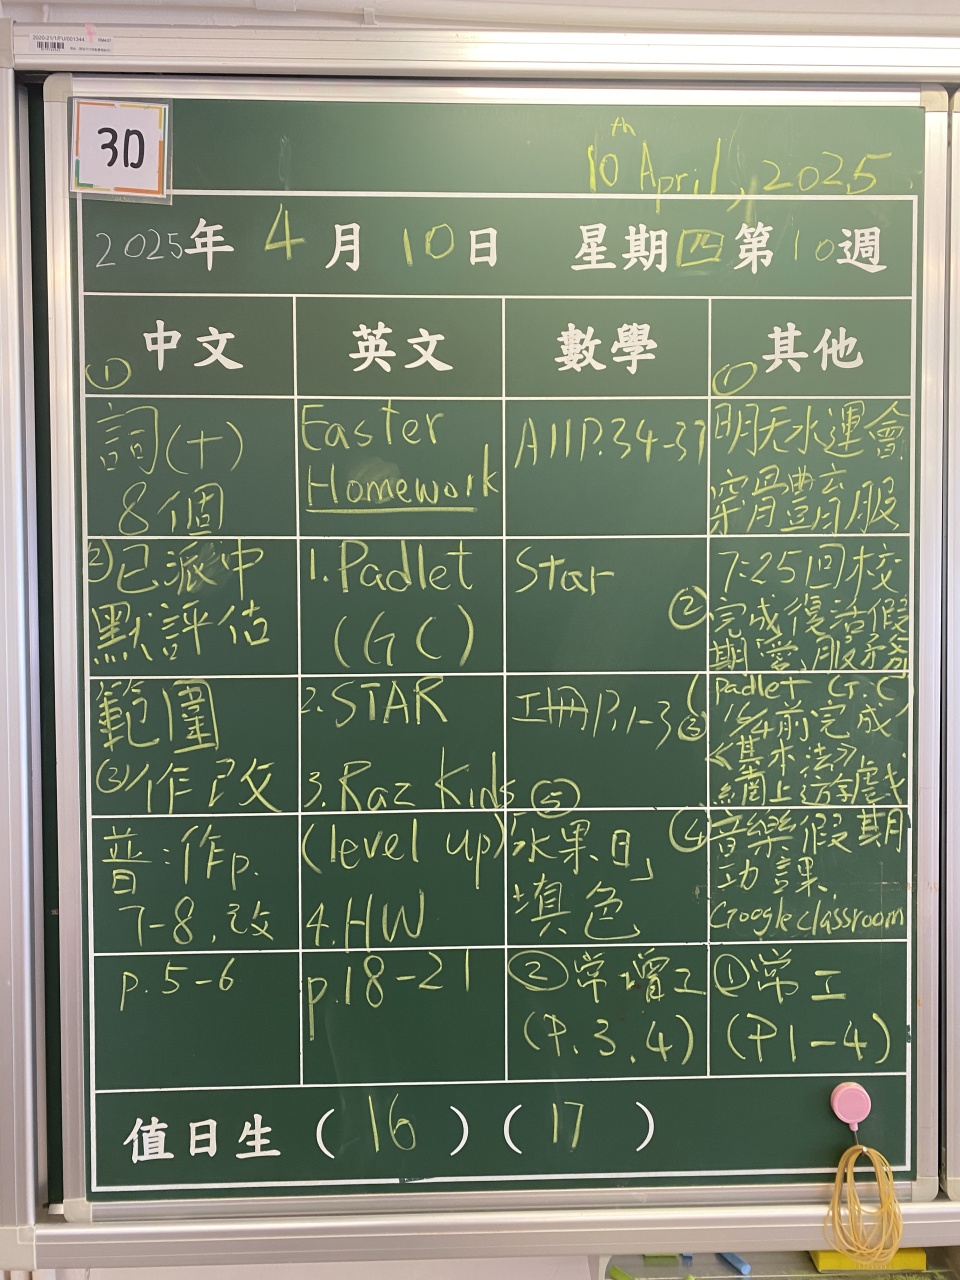 2020-21/1/FU/001344
3D
10th April, 2025
2025年 4月 10日 星期四 第10週
中文 英文 數學 其他
①
詞(十)
8個
②已派中
默評估
範圍
③作改
普:作p.
7-8,改
p.5-6
Easter
Homework
1.Padlet
(GC)
2.STAR
3.Raz Kids
(level up)
4.HW
p.18-21
A11P.34-37
Star
工冊P.1-3
⑤
「水果日」
填色
②常增工
(P.3.4)
①
明天水運會
穿齊體育服
7:25回校
②完成復活假
期愛,服務
(Padlet G.C)
③15/4前完成
《基本法》
網上遊戲
④音樂假期
功課
Google classroom
①常工
(P1-4)
值日生 (16) (17)